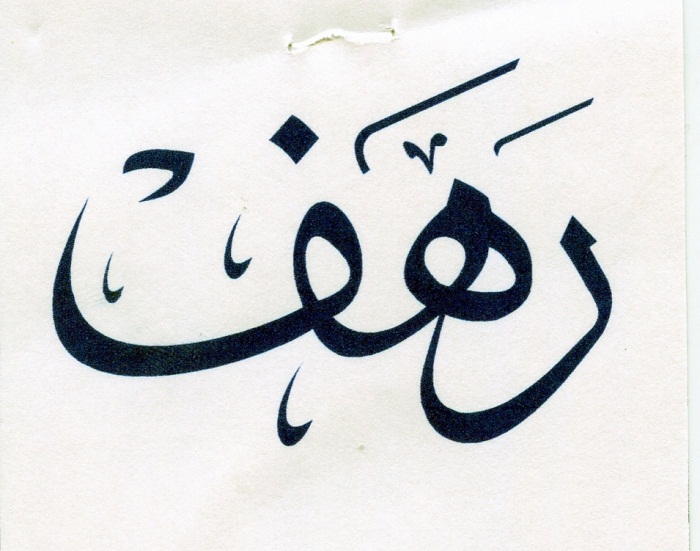 رهف